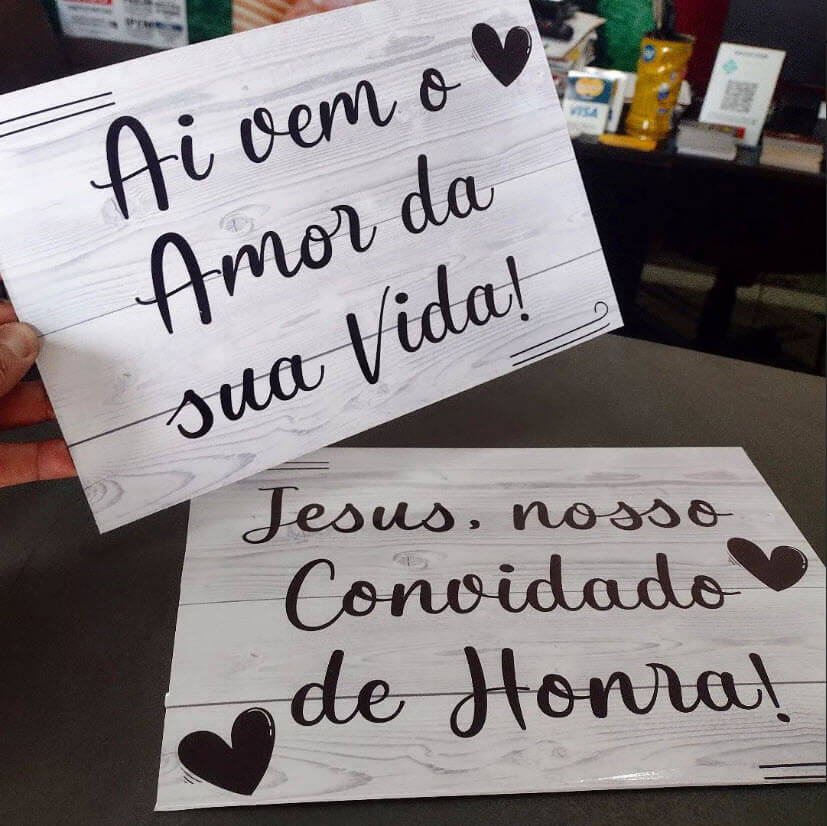 Ai vem o
Amor da
sua Vida!
Jesus, nosso
Convidado
de Honra!
VISA